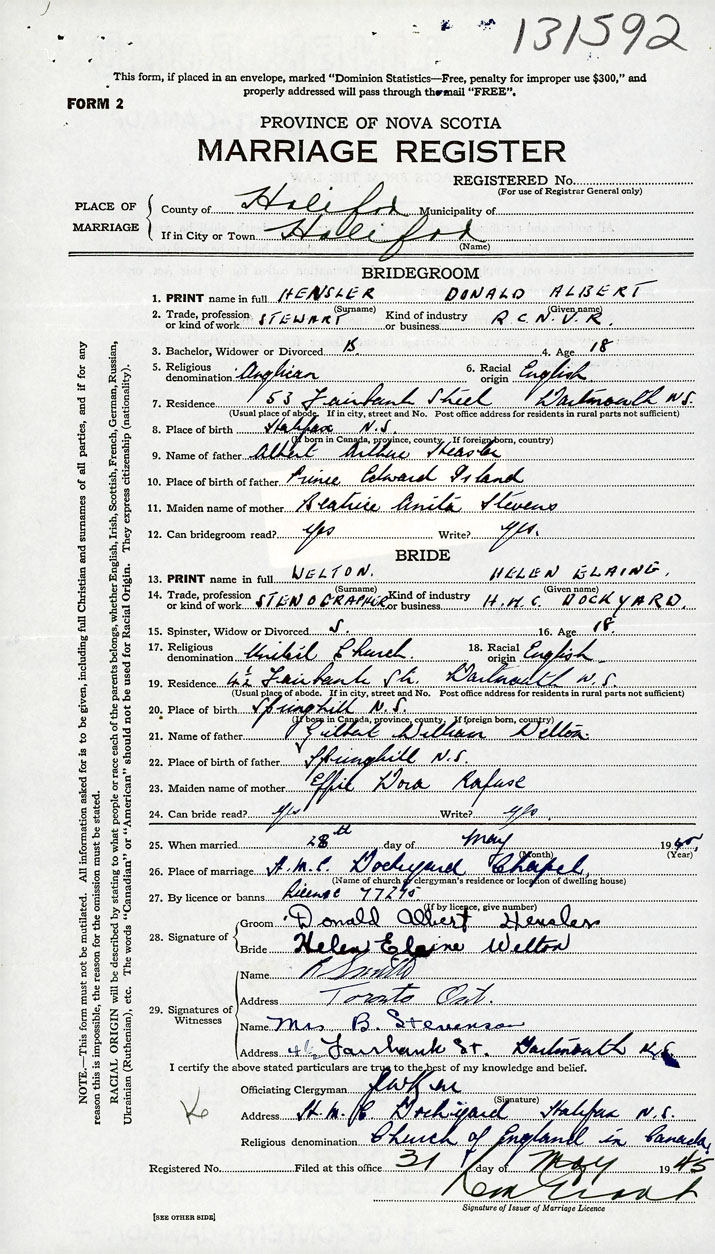 131592
This form, if placed in an envelope, marked "Dominion Statistics—Free, penalty for improper use $300," and
properly addressed will pass through the mail "FREE".
FORM 2
PROVINCE OF NOVA SCOTIA
MARRIAGE REGISTER
REGISTERED No.
(For use of Registrar General only)
PLACE OF MARRIAGE
County of Halifax Municipality of
If in City or Town Halifax
(Name)
BRIDEGROOM
1. PRINT name in full HENSLER DONALD ALBERT
(Surname) (Given name)
2. Trade, profession or kind of work STEWART Kind of industry or business R.C.N.V.R.
3. Bachelor, Widower or Divorced B. 4. Age 18
5. Religious denomination Anglican 6. Racial origin English
7. Residence 53 Fairbank Street Dartmouth N.S.
(Usual place of abode. If in city, street and No. Post office address for residents in rural parts not sufficient)
8. Place of birth Halifax N.S.
(If born in Canada, province, county. If foreign born, country)
9. Name of father Albert Arthur Hensler
10. Place of birth of father Prince Edward Island
11. Maiden name of mother Beatrice Anita Stevens
12. Can bridegroom read? yes Write? yes.
BRIDE
13. PRINT name in full WELTON. HELEN ELAINE.
(Surname) (Given name)
14. Trade, profession or kind of work STENOGRAPHER Kind of industry or business H.M.C. DOCKYARD.
15. Spinster, Widow or Divorced S. 16. Age 18.
17. Religious denomination United Church. 18. Racial origin English
19. Residence Fairbank St. Dartmouth N.S.
(Usual place of abode. If in city, street and No. Post office address for residents in rural parts not sufficient)
20. Place of birth Springhill N.S.
(If born in Canada, province, county. If foreign born, country)
21. Name of father Gilbert William Welton.
22. Place of birth of father Springhill N.S.
23. Maiden name of mother Effie Dora Rafuse
24. Can bride read? yes Write? yes.
25. When married 28th day of May 1945
(Month) (Year)
26. Place of marriage H.M.C. Dockyard Chapel,
(Name of church or clergyman's residence or location of dwelling house)
27. By licence or banns License
(If by licence, give number)
28. Signature of
Groom Donald Albert Hensler
Bride Helen Elaine Welton
29. Signatures of Witnesses
Name Smith
Address Toronto Ont.
Name Mrs B. Stevenson
Address Fairbank St. Dartmouth N.S.
I certify the above stated particulars are true to the best of my knowledge and belief.
Officiating Clergyman
(Signature)
Address H.M.C Dockyard Halifax N.S.
Religious denomination Church of England in Canada,
Registered No. Filed at this office 31 day of May 1945
Signature of Issuer of Marriage Licence
[SEE OTHER SIDE]
NOTE.—This form must not be mutilated. All information asked for is to be given, including full Christian and surnames of all parties, and if for any
reason this is impossible, the reason for the omission must be stated.
RACIAL ORIGIN will be described by stating to what people or race each of the parents belongs, whether English, Irish, Scottish, French, German, Russian,
Ukrainian (Ruthenian), etc. The words "Canadian" or "American" should not be used for Racial Origin. They express citizenship (nationality).